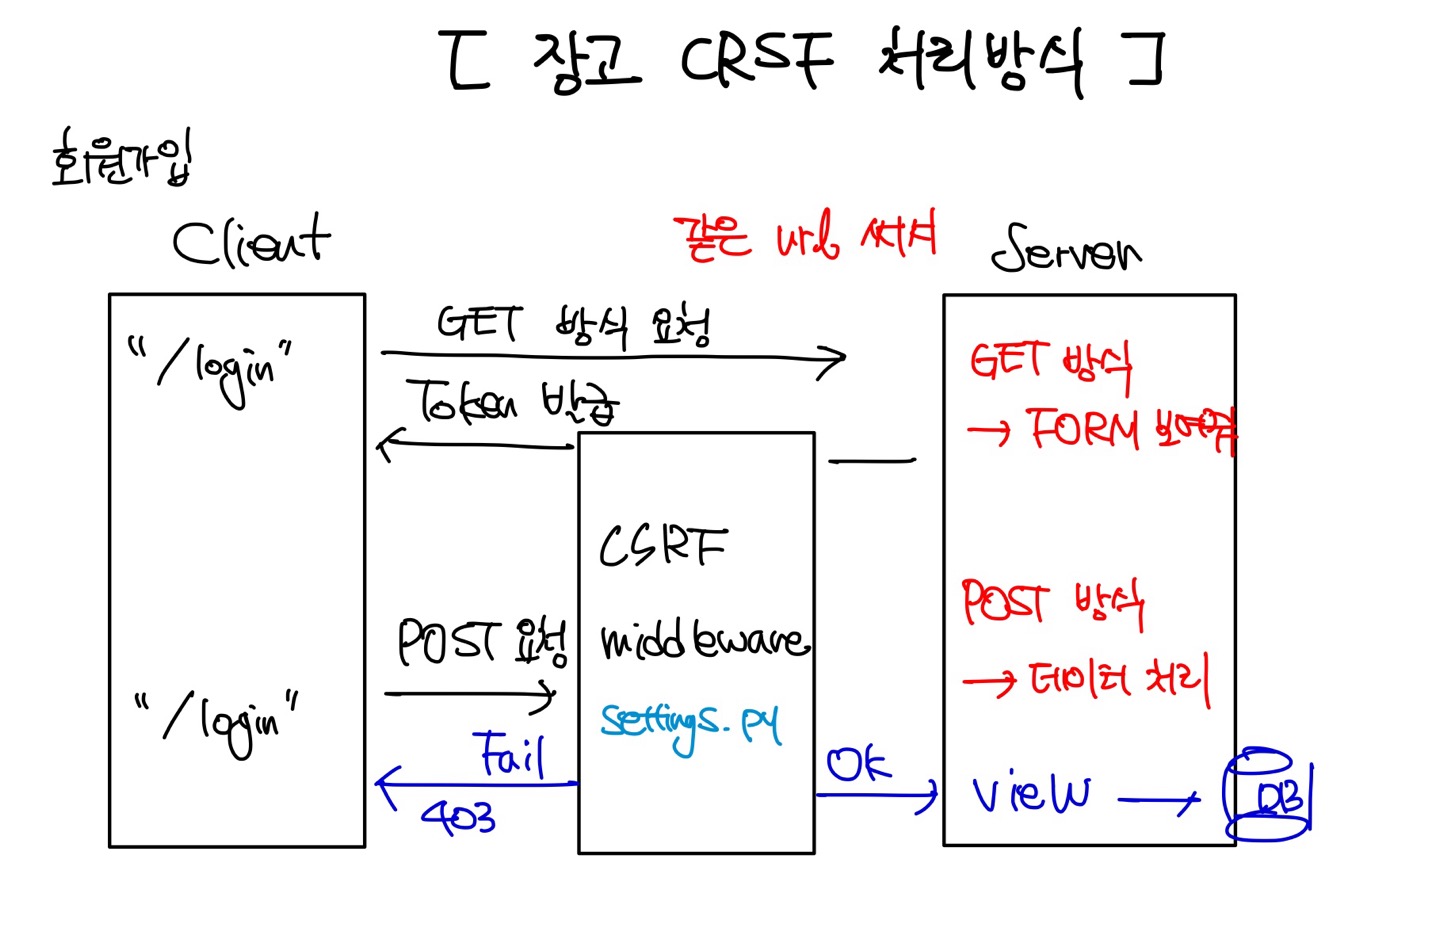 [ 장고 CRSF 처리방식 ]
회원가입
Client
같은 url 써서
Server
"/login"
GET 방식 요청
Token 발급
GET 방식
→ FORM 보여줘
CSRF
middleware
settings.py
POST 요청
"/login"
POST 방식
→ 데이터 처리
Fail
403
OK
view → DB